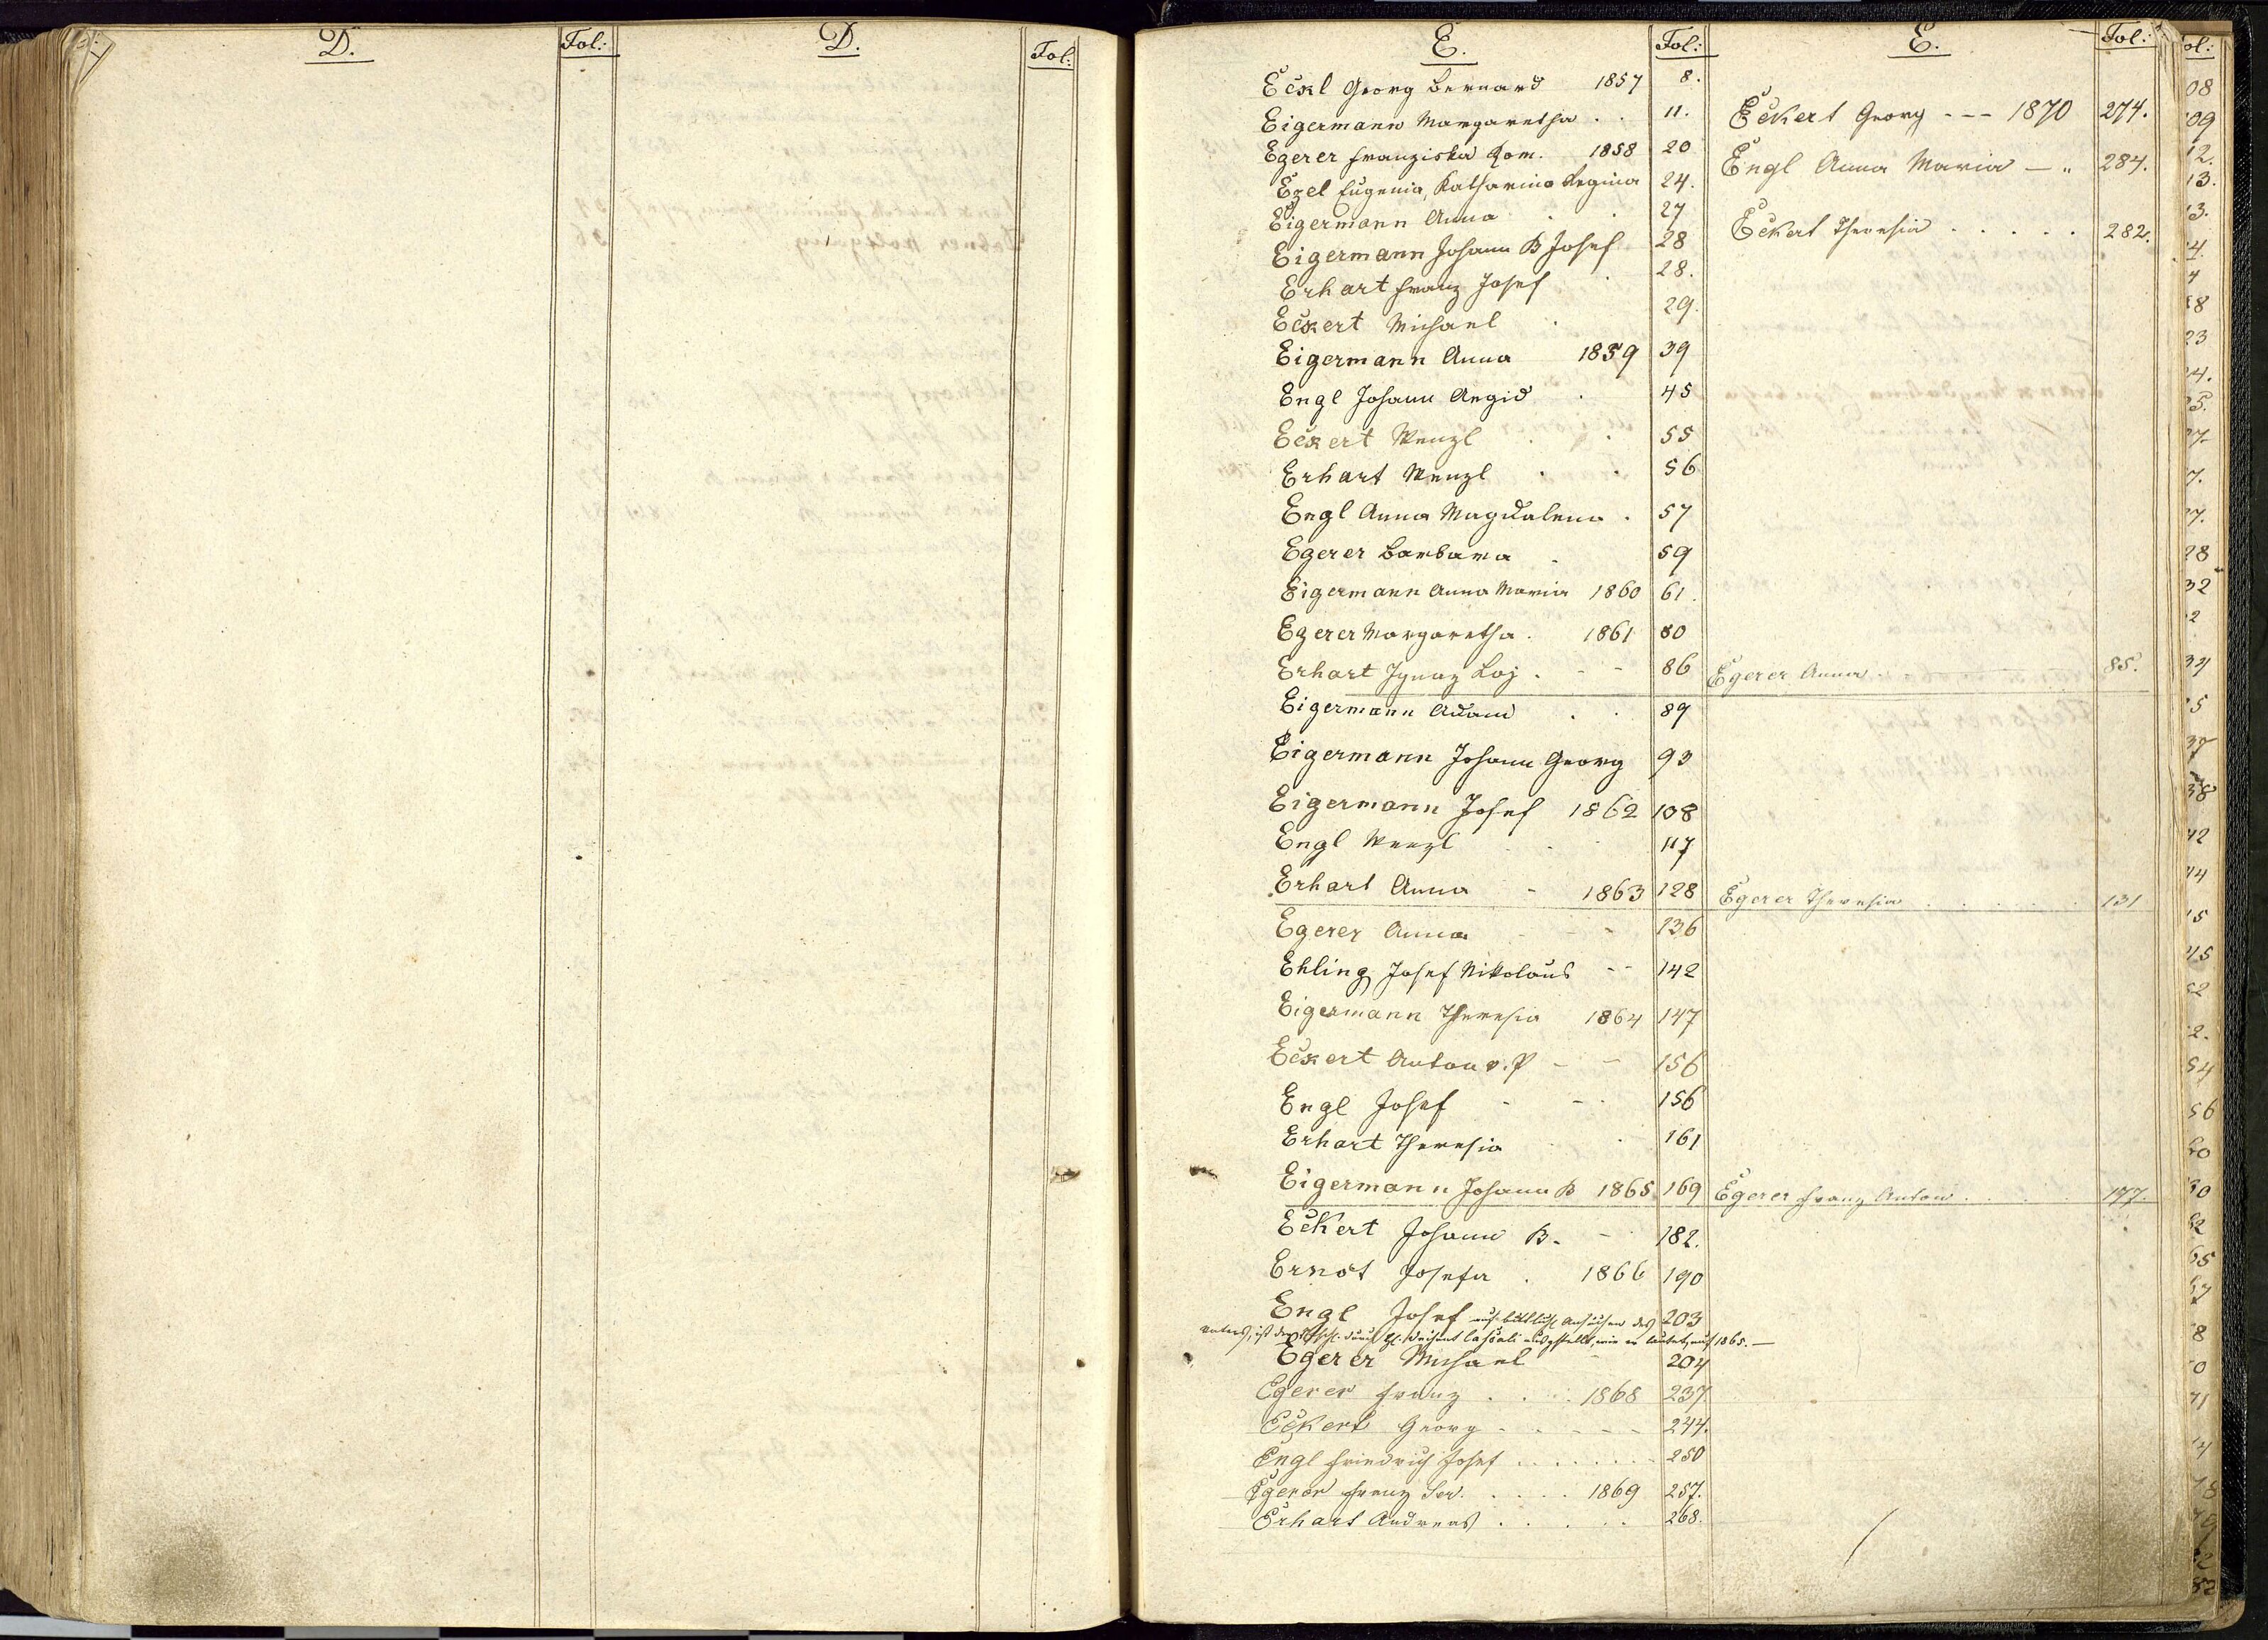 D. Fol: D. Fol:
E. Fol:
Eckl Georg Bernard 1857 8.
Eigermann Margaretha . . 11.
Egerer Franziska Rom. 1858 20
Ezel Eugenia Katharina Regina 24.
Eigermann Anna . . 27
Eigermann Johann B Josef 28
Erhart Franz Josef . 28.
Eckert Michael . 29.
Eigermann Anna 1859 39
Engl Johann Aegid . 45
Eckert Wenzl . . 55
Erhart Wenzl . . 56
Engl Anna Magdalena . 57
Egerer Barbara . 59
Eigermann Anna Maria 1860 61.
Egerer Margaretha . 1861 80
Erhart Ignaz Loj . - - 86
Eigermann Adam . . 89
Eigermann Johann Georg 93
Eigermann Josef 1862 108
Engl Wenzl . . 117
Erhart Anna - 1863 128
Egerer Anna - - 136
Ehling Josef Nikolaus -- 142
Eigermann Theresia 1864 147
Eckert Anton v. P - - 156
Engl Josef - - . 156
Erhart Theresia . . 161
Eigermann Johann B 1865 169
Eckert Johann B. - 182.
Ernst Josefa . 1866 190
Engl Josef auf bittlich Ansuchen des 203
Vaters, ist der durch ausgestellt, wie er lautet, auf 1865. —
Egerer Michael - 204
Egerer Franz . . . 1868 237.
Eckert Georg - - - - - 244.
Engl Friedrich Josef . . . . . . . 250
Egerer Franz Ser. . . . . 1869 257.
Erhart Andreas . . . . . 268.
E. Fol:
Eckert Georg --- 1870 274.
Engl Anna Maria — " 284.
Eckert Theresia . . . . . 282.
Egerer Anna . . . 85.
Egerer Theresia . . . . . 131
Egerer Franz Anton . . . 177.
ol:
08
09
12.
13.
13.
4.
4
18
23
24.
25.
27.
7.
27.
28
32
2
34
5
37
38
42
44
15
45
52
2.
54
56
60
60
62
65
67
8
0
71